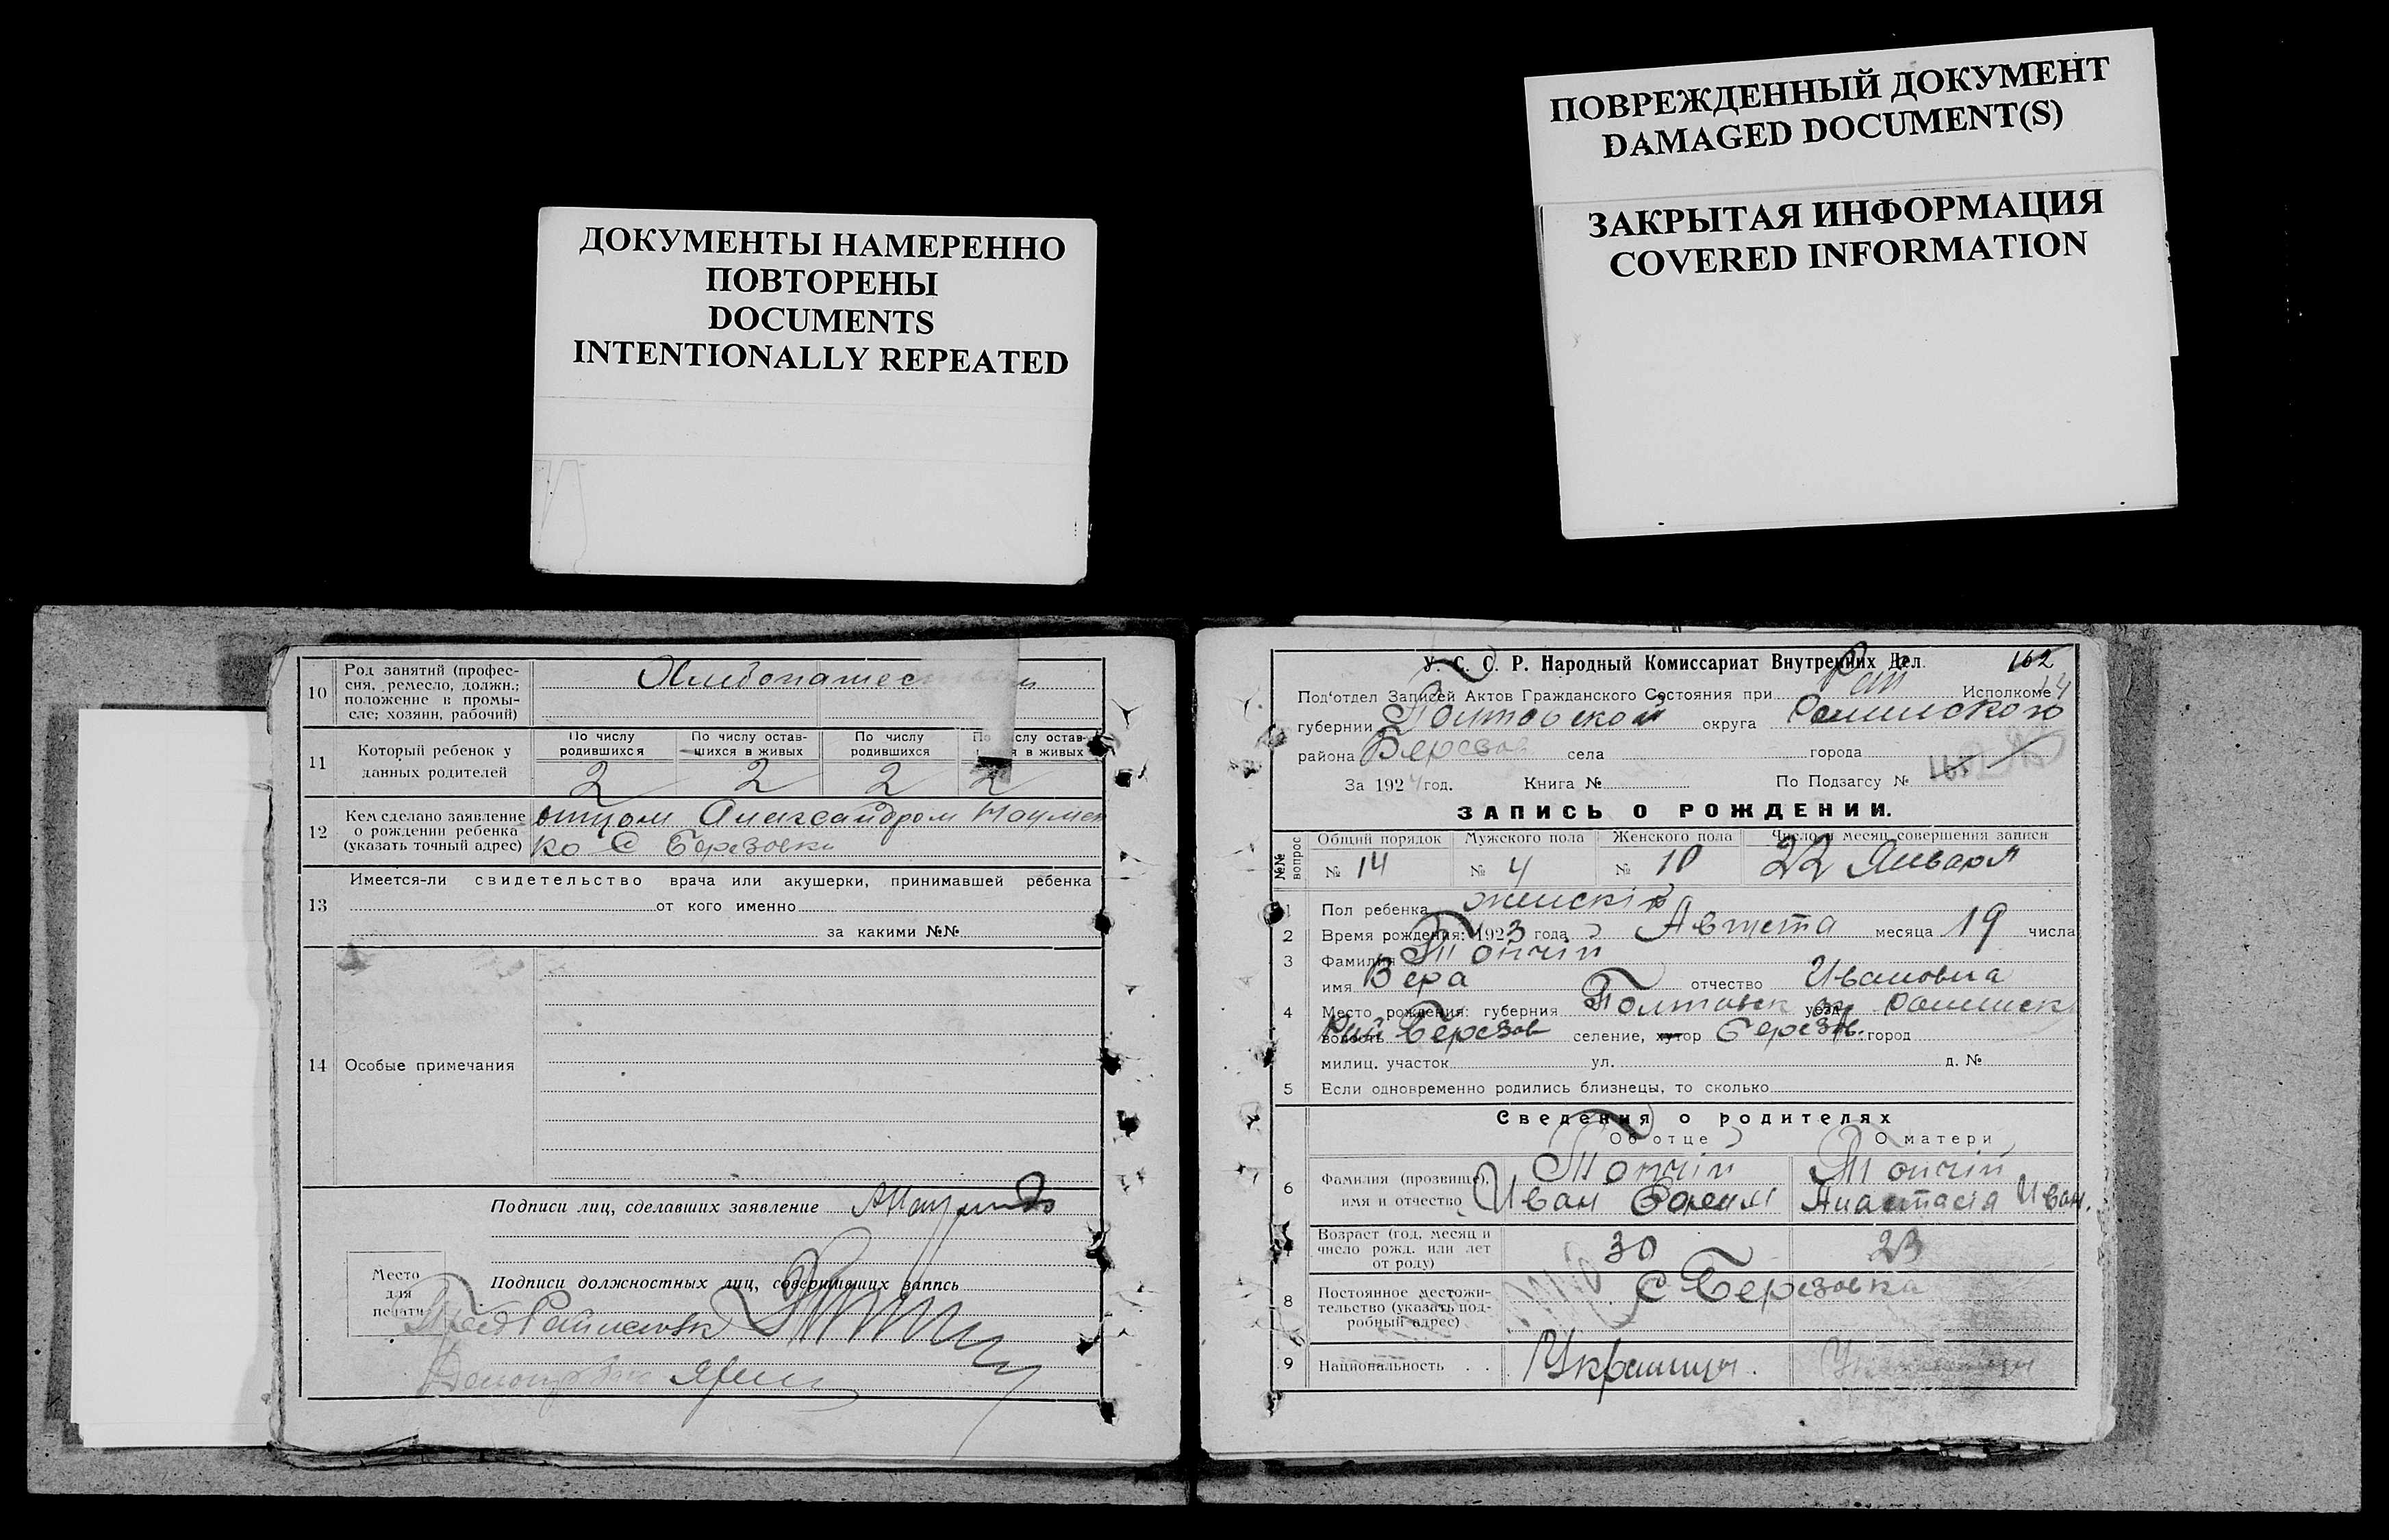 ПОВРЕЖДЕННЫЙ ДОКУМЕНТ
DAMAGED DOCUMENT(S)
ЗАКРЫТАЯ ИНФОРМАЦИЯ
COVERED INFORMATION
ДОКУМЕНТЫ НАМЕРЕННО
ПОВТОРЕНЫ
DOCUMENTS
INTENTIONALLY REPEATED
10 Род занятий (профес-
сия, ремесло, должн.;
положение в промы-
сле; хозяин, рабочий)
11 Который ребенок у
данных родителей
По числу родившихся По числу остав-шихся в живых По числу родившихся
2 2 2 2
12 Кем сделано заявление
о рождении ребенка
(указать точный адрес)
отцом Александром Наумен
ко С Березовки
13 Имеется-ли свидетельство врача или акушерки, принимавшей ребенка
от кого именно
за какими №№
14 Особые примечания
Подписи лиц, сделавших заявление
Место
для
печати
Подписи должностных лиц, совершивших запись
У. С. С. Р. Народный Комиссариат Внутренних Дел. 162
Под'отдел Записей Актов Гражданского Состояния при Рай Исполкоме 14
губернии Полтовской округа Роменского
района Березов села города
За 1924 год. Книга № По Подзагсу №
ЗАПИСЬ О РОЖДЕНИИ.
№№ вопрос
Общий порядок Мужского пола Женского пола Число и месяц совершения записи
№ 14 № 4 № 10 22 Января
1 Пол ребенка женскій
2 Время рождения: 1923 года Августа месяца 19 числа
3 Фамилия
имя Вера отчество Ивановна
4 Место рождения: губерния Полтовск уезд Роменск
волость Рай Березов селение, хутор Березов. город
милиц. участок ул. д. №
5 Если одновременно родились близнецы, то сколько
Сведения о родителях
Об отце О матери
6 Фамилия (прозвище),
имя и отчество
Иван Анастасія Иван.
7 Возраст (год, месяц и
число рожд. или лет
от роду)
30 23
8 Постоянное местожи-
тельство (указать под-
робный адрес)
С Березовка
9 Национальность . . Украинцы.